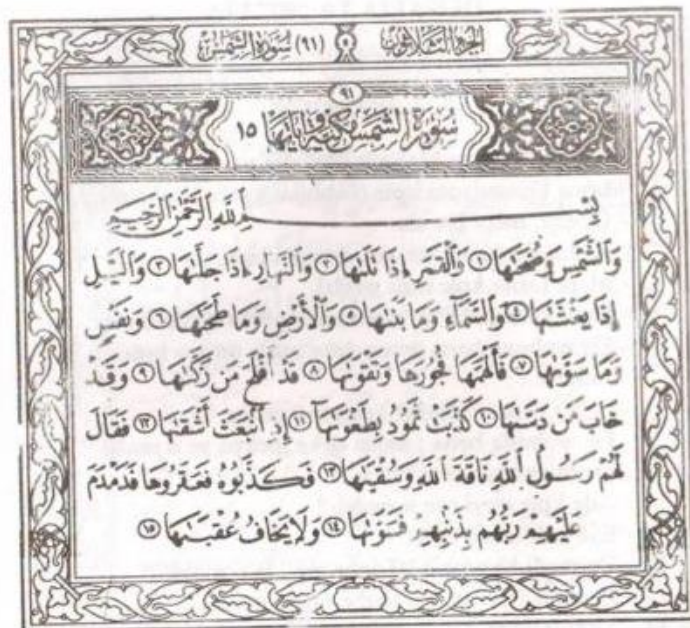 الجزء الثلاثون (٩١) سورة الشمس
٩١
سورة الشمس مكية وآياتها ١٥
بِسْمِ اللَّهِ الرَّحْمَٰنِ الرَّحِيمِ
وَالشَّمْسِ وَضُحَىٰهَا ١ وَالْقَمَرِ إِذَا تَلَىٰهَا ٢ وَالنَّهَارِ إِذَا جَلَّىٰهَا ٣ وَالَّيْلِ
إِذَا يَغْشَىٰهَا ٤ وَالسَّمَآءِ وَمَا بَنَىٰهَا ٥ وَالْأَرْضِ وَمَا طَحَىٰهَا ٦ وَنَفْسٍ
وَمَا سَوَّىٰهَا ٧ فَأَلْهَمَهَا فُجُورَهَا وَتَقْوَىٰهَا ٨ قَدْ أَفْلَحَ مَن زَكَّىٰهَا ٩ وَقَدْ
خَابَ مَن دَسَّىٰهَا ١٠ كَذَّبَتْ ثَمُودُ بِطَغْوَىٰهَآ ١١ إِذِ انۢبَعَثَ أَشْقَىٰهَا ١٢ فَقَالَ
لَهُمْ رَسُولُ اللَّهِ نَاقَةَ اللَّهِ وَسُقْيَٰهَا ١٣ فَكَذَّبُوهُ فَعَقَرُوهَا فَدَمْدَمَ
عَلَيْهِمْ رَبُّهُم بِذَنۢبِهِمْ فَسَوَّىٰهَا ١٤ وَلَا يَخَافُ عُقْبَٰهَا ١٥